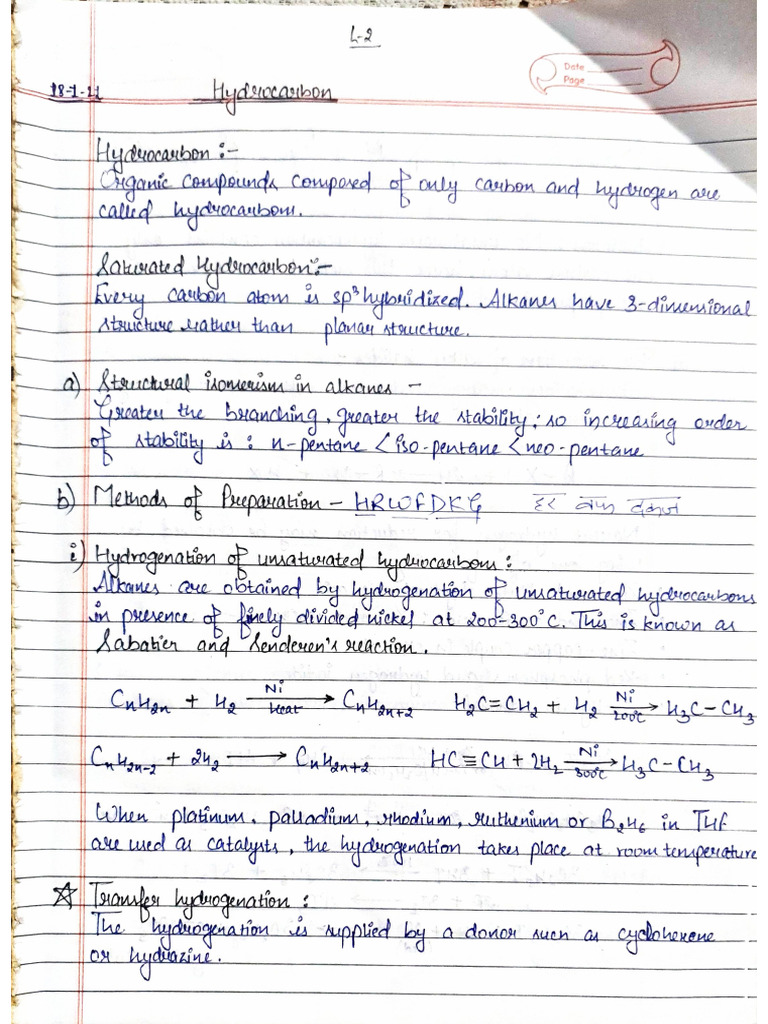 L-2
Date
Page
18-1-21
Hydrocarbon
Hydrocarbon :-
Organic compounds composed of only carbon and hydrogen are
called hydrocarbons.
Saturated Hydrocarbon :-
Every carbon atom is sp³ hybridized. Alkanes have 3-dimensional
structure rather than planar structure.
a) Structural isomerism in alkanes -
Greater the branching, greater the stability; so increasing order
of stability is : n-pentane < iso-pentane < neo-pentane
b) Methods of Preparation - HRWFDKG
i) Hydrogenation of unsaturated hydrocarbons :
Alkanes are obtained by hydrogenation of unsaturated hydrocarbons
in presence of finely divided nickel at 200-300°C. This is known as
Sabatier and Senderen's reaction.
CnH2n + H2 —Ni/Heat→ CnH2n+2 H2C=CH2 + H2 —Ni/200°C→ H3C-CH3
CnH2n-2 + 2H2 ⟶ CnH2n+2 HC≡CH + 2H2 —Ni/300°C→ H3C-CH3
When platinum, palladium, rhodium, ruthenium or B2H6 in THF
are used as catalysts, the hydrogenation takes place at room temperature
☆ Transfer hydrogenation :
The hydrogenation is supplied by a donor such as cyclohexene
or hydrazine.